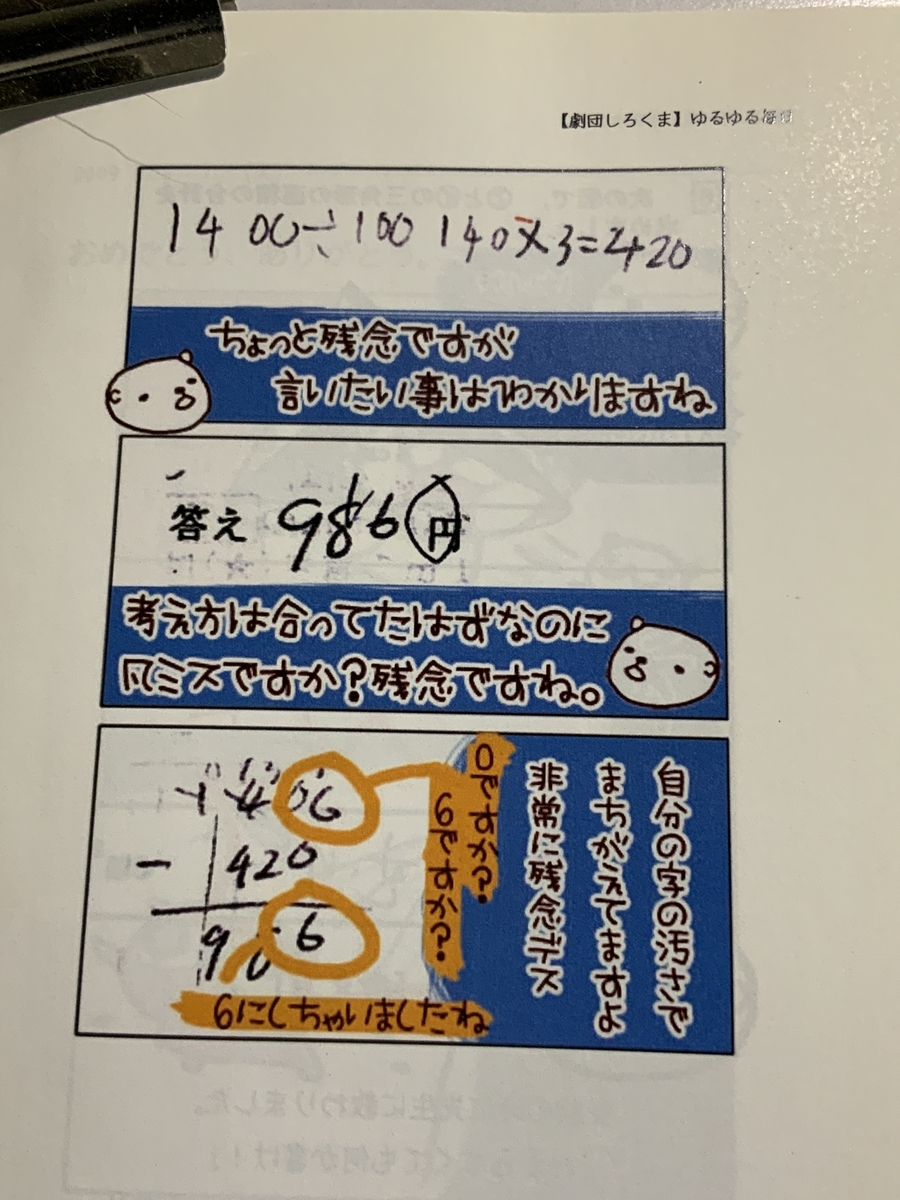 【劇団しろくま】ゆるゆる毎日
14 00÷100 140×3=420
ちょっと残念ですが
言いたい事はわかりますね
答え 986円
考え方は合ってたはずなのに
凡ミスですか?残念ですね。
自分の字の汚さで
まちがえてますよ
非常に残念デス
0ですか?
6ですか?
- 420
6にしちゃいましたね